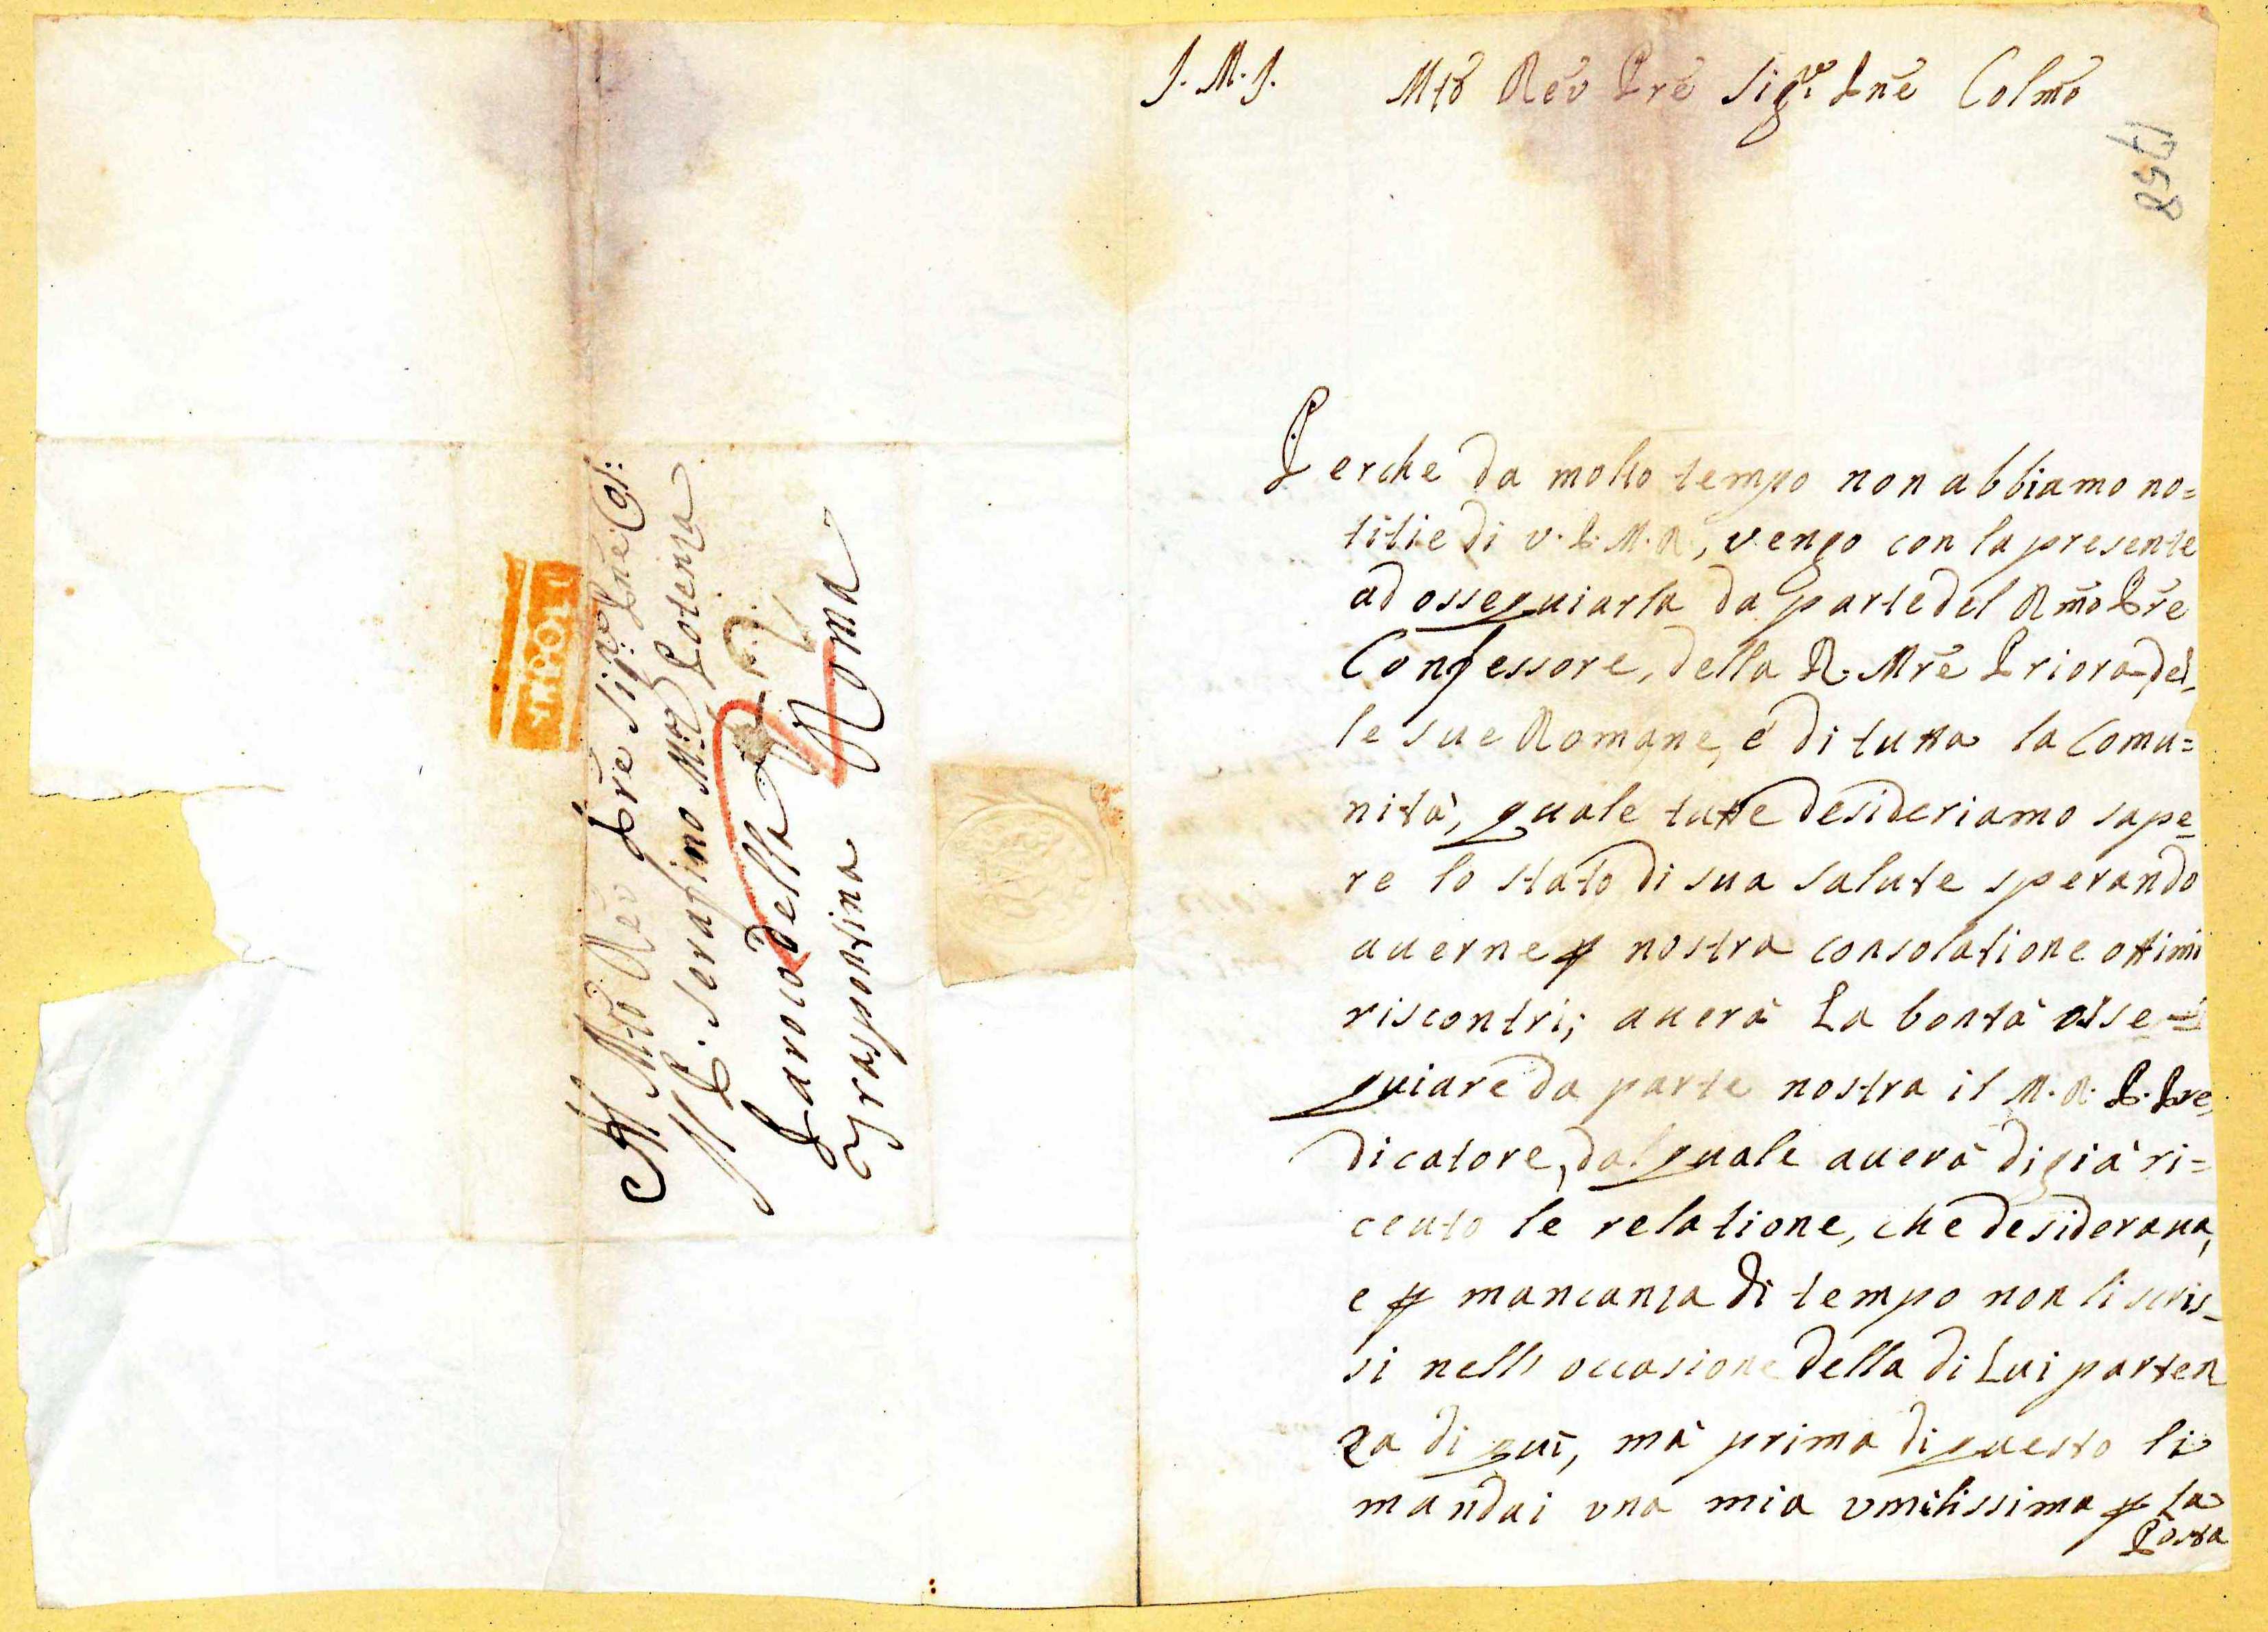 Al Mto Rev Pre Sigre Pne Col:
Il P. Serafino Ma Potenza
Paroco della
Traspontina Roma
J. M. J. Mto Rev Pre Sigre Pne Colmo
1758
Perche da molto tempo non abbiamo no=
titie di V. P. M. R, vengo con la presente
ad ossequiarla da parte del Rmo Pre
Confessore, della R. Mre Priora, del
le sue Romane, e di tutta la Comu=
nità, quale tutte desideriamo sape=
re lo stato di sua salute sperando
averne p nostra consolatione ottimi
riscontri; averà La bontà osse=
quiare da parte nostra il M. R. P. Pre,
dicatore, dal quale averà digià ri=
ceuto le relatione, che desiderava,
e p mancanza di tempo non li scris=
si nell occasione della di Lui parten
za di quì, mà prima di questo li
mandai una mia umilissima p la
Posta